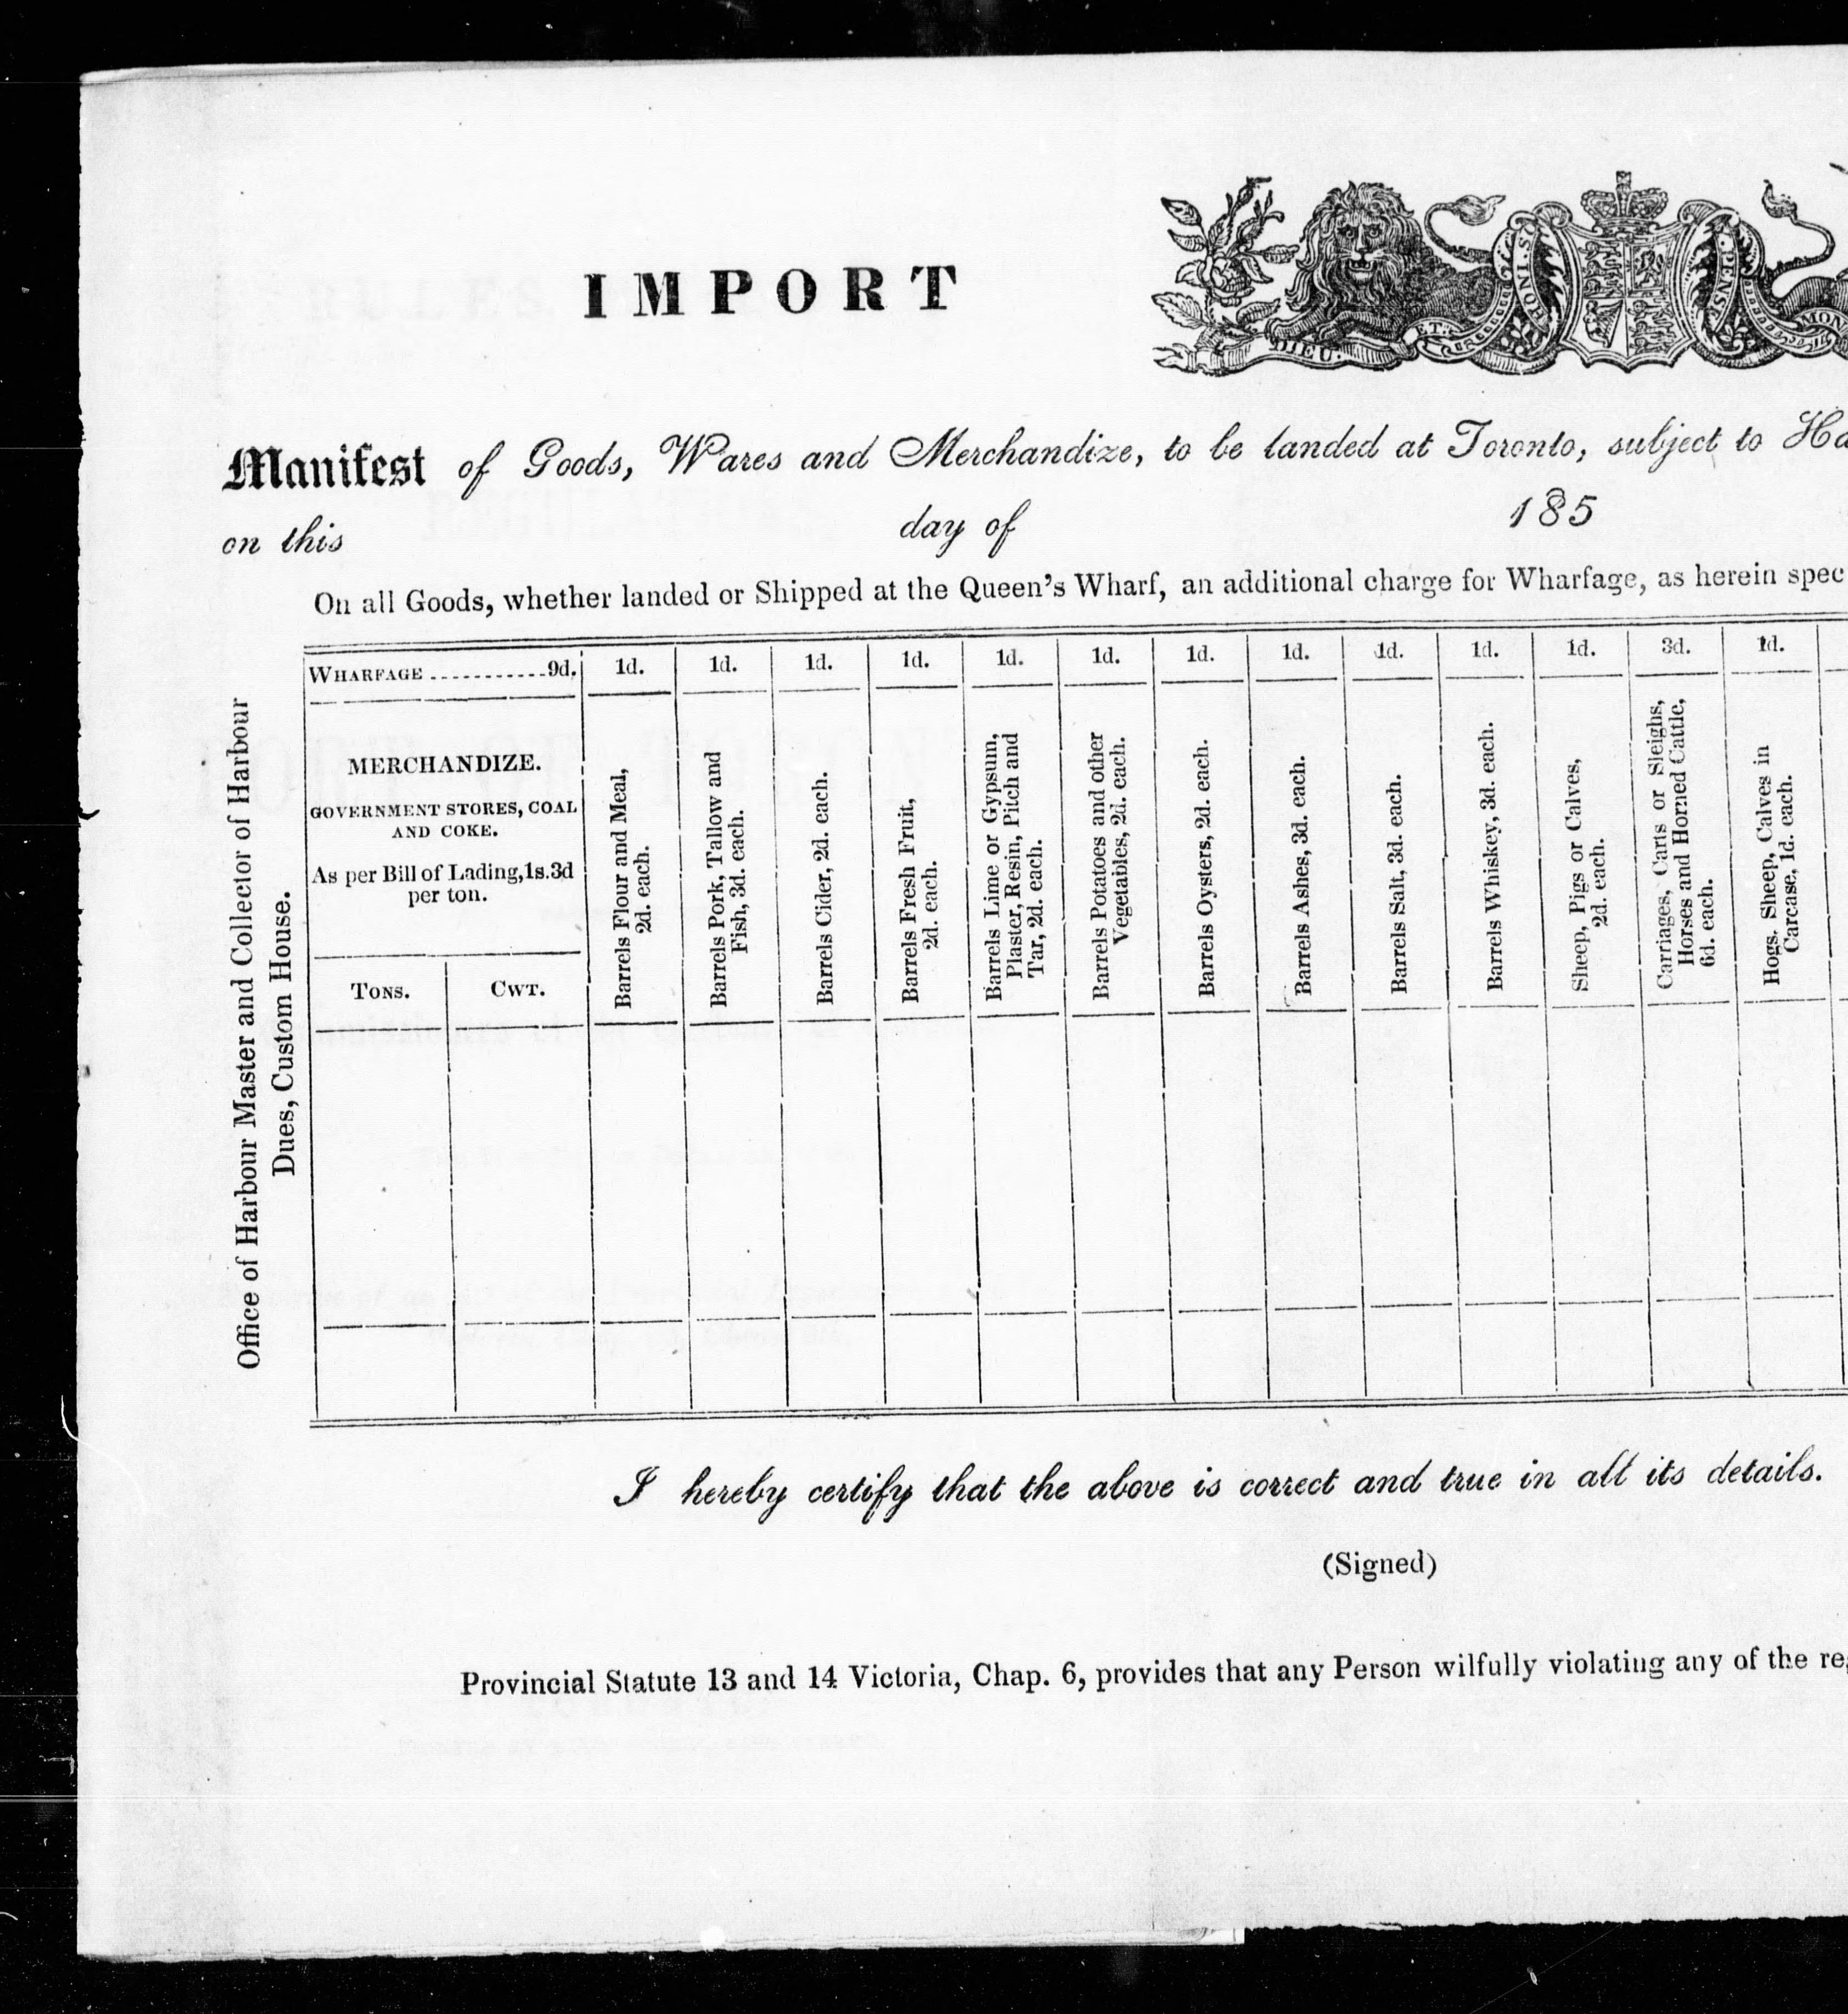 IMPORT
DIEU. ET. HONI. SOI PENSE MON
Manifest of Goods, Wares and Merchandize, to be landed at Toronto, subject to Ha
on this day of 185
On all Goods, whether landed or Shipped at the Queen's Wharf, an additional charge for Wharfage, as herein spec
Office of Harbour Master and Collector of Harbour
Dues, Custom House.
WHARFAGE ...........9d. 1d. 1d. 1d. 1d. 1d. 1d. 1d. 1d. 1d. 1d. 1d. 3d. 1d.
MERCHANDIZE.
GOVERNMENT STORES, COAL
AND COKE.
As per Bill of Lading, 1s. 3d
per ton.
TONS. CWT.
Barrels Flour and Meal,
2d. each.
Barrels Pork, Tallow and
Fish, 3d. each.
Barrels Cider, 2d. each.
Barrels Fresh Fruit,
2d. each.
Barrels Lime or Gypsun,
Plaster, Resin, Pitch and
Tar, 2d. each.
Barrels Potatoes and other
Vegetables, 2d. each.
Barrels Oysters, 2d. each.
Barrels Ashes, 3d. each.
Barrels Salt, 3d. each.
Barrels Whiskey, 3d. each.
Sheep, Pigs or Calves,
2d. each.
Carriages, Carts or Sleighs,
Horses and Horned Cattle,
6d. each.
Hogs. Sheep, Calves in
Carcase, 1d. each.
I hereby certify that the above is correct and true in all its details.
(Signed)
Provincial Statute 13 and 14 Victoria, Chap. 6, provides that any Person wilfully violating any of the re